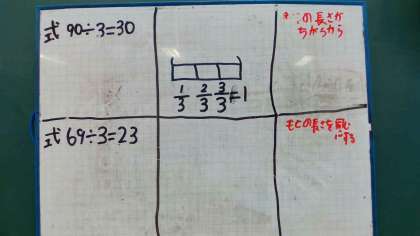 式 90÷3=30
1/3 2/3 3/3=1
の長さが
ちがうから
式 69÷3=23
もとの長さを同じ
にする